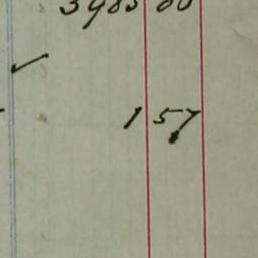 3985 80
✓
1 57